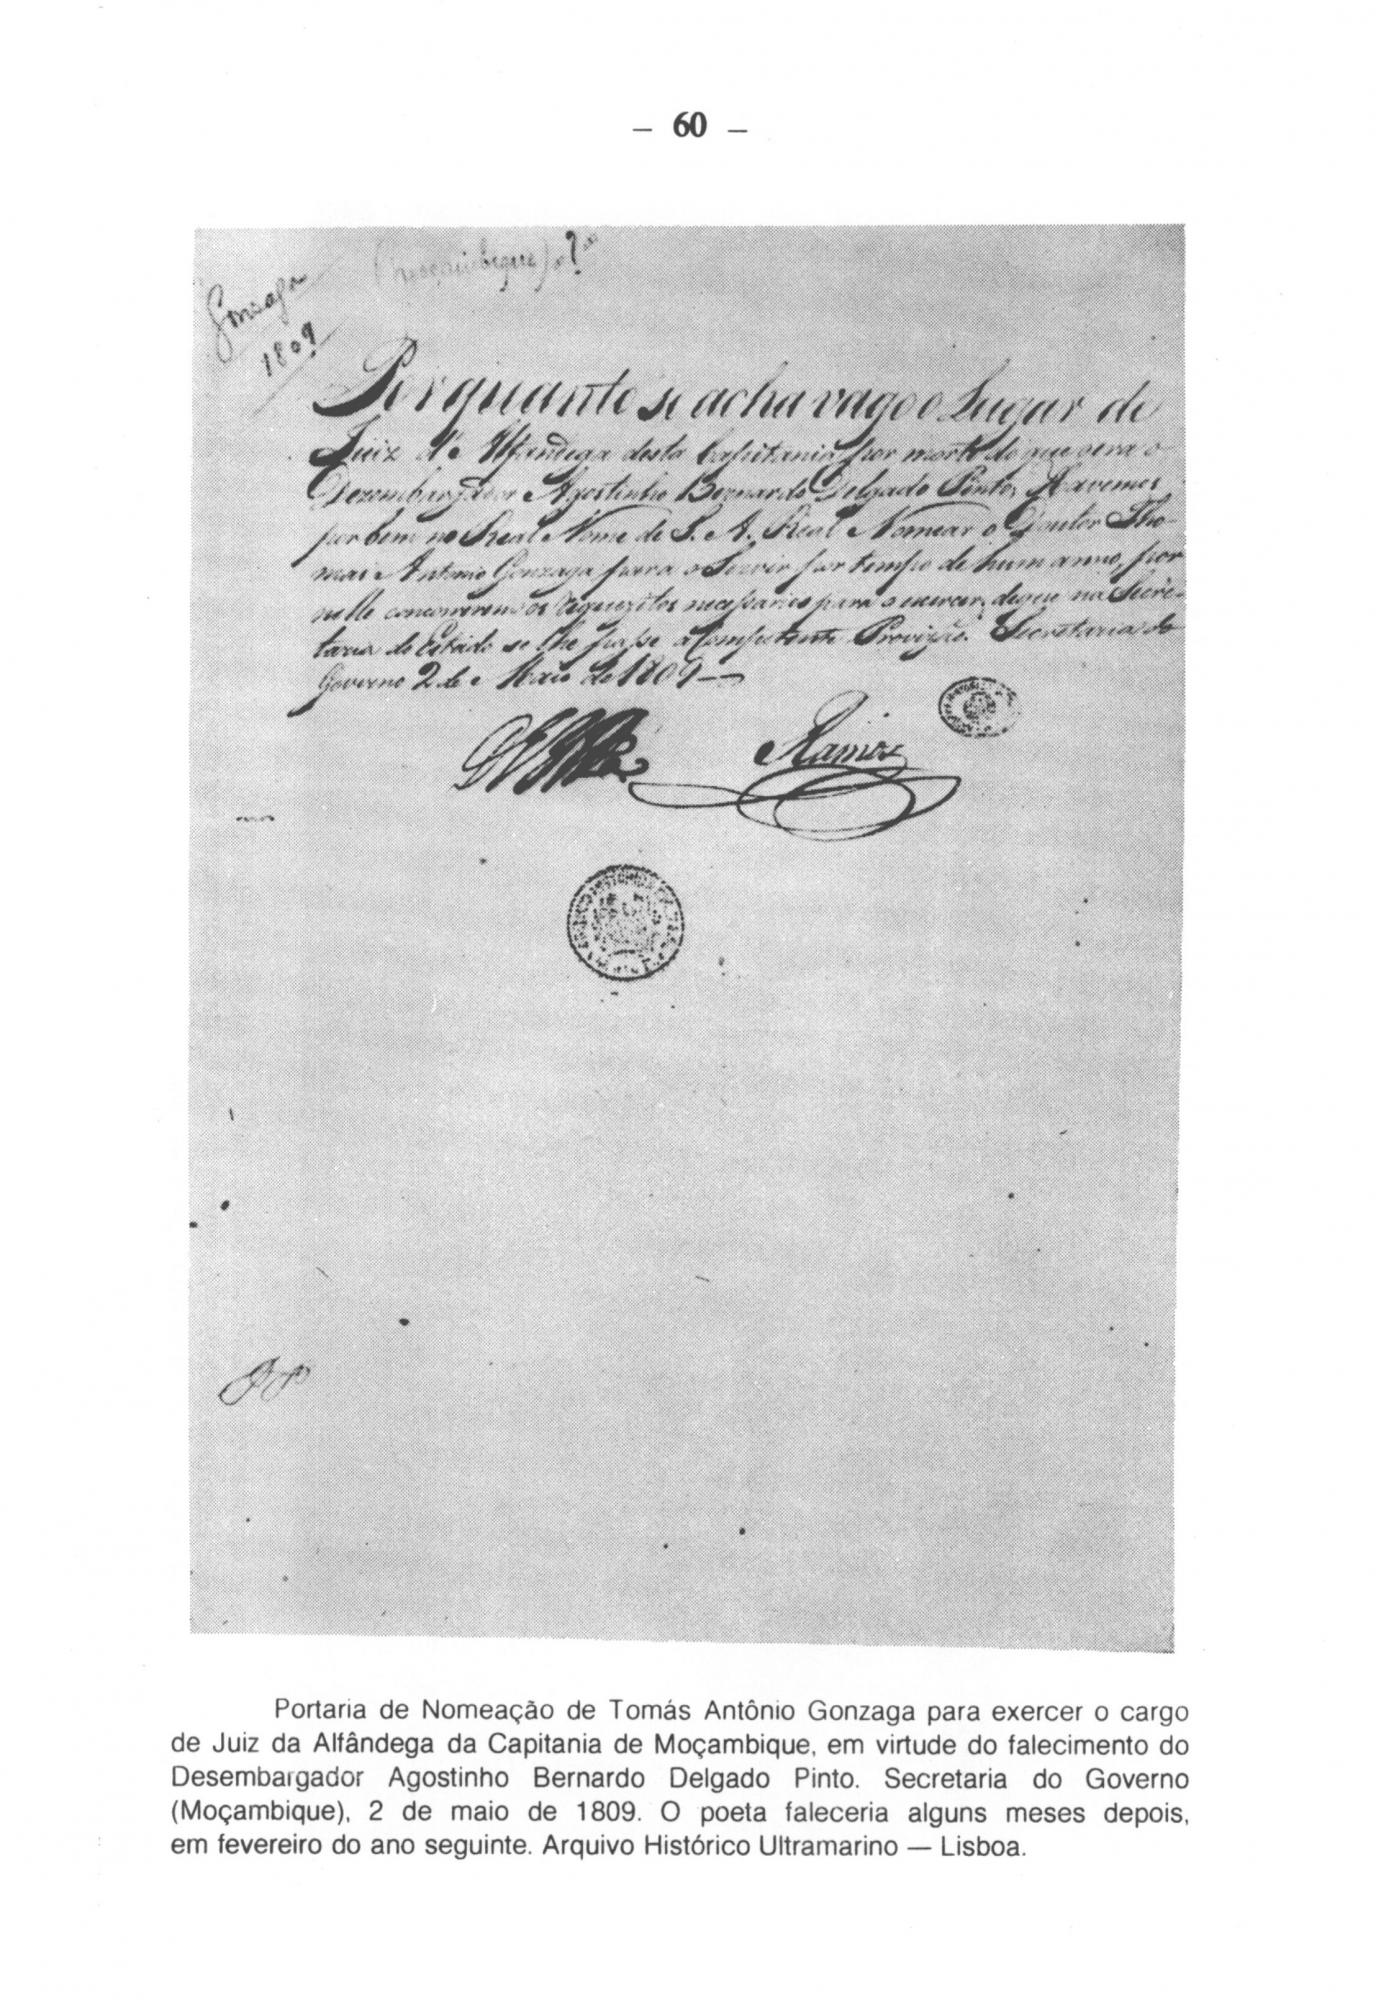 – 60 –
(Moçambique) ?
Gonzaga
1809
Porquanto se acha vago o Lugar de
Juiz d'Alfandega desta Capitania por morte do que o era o
Dezembargador Agostinho Bernardo Delgado Pinto, Havemos
por bem no Real Nome de S. A. Real Nomear o Doutor Tho-
maz Antonio Gonzaga para o Servir por tempo de hum anno, por
nelle concorrerem os requezitos necessarios para o exercer, de que na Secre-
taria do Estado se lhe passe a Competente Provizão. Secretaria do
Governo 2 de Maio de 1809
Ramos
Portaria de Nomeação de Tomás Antônio Gonzaga para exercer o cargo
de Juiz da Alfândega da Capitania de Moçambique, em virtude do falecimento do
Desembargador Agostinho Bernardo Delgado Pinto. Secretaria do Governo
(Moçambique), 2 de maio de 1809. O poeta faleceria alguns meses depois,
em fevereiro do ano seguinte. Arquivo Histórico Ultramarino — Lisboa.